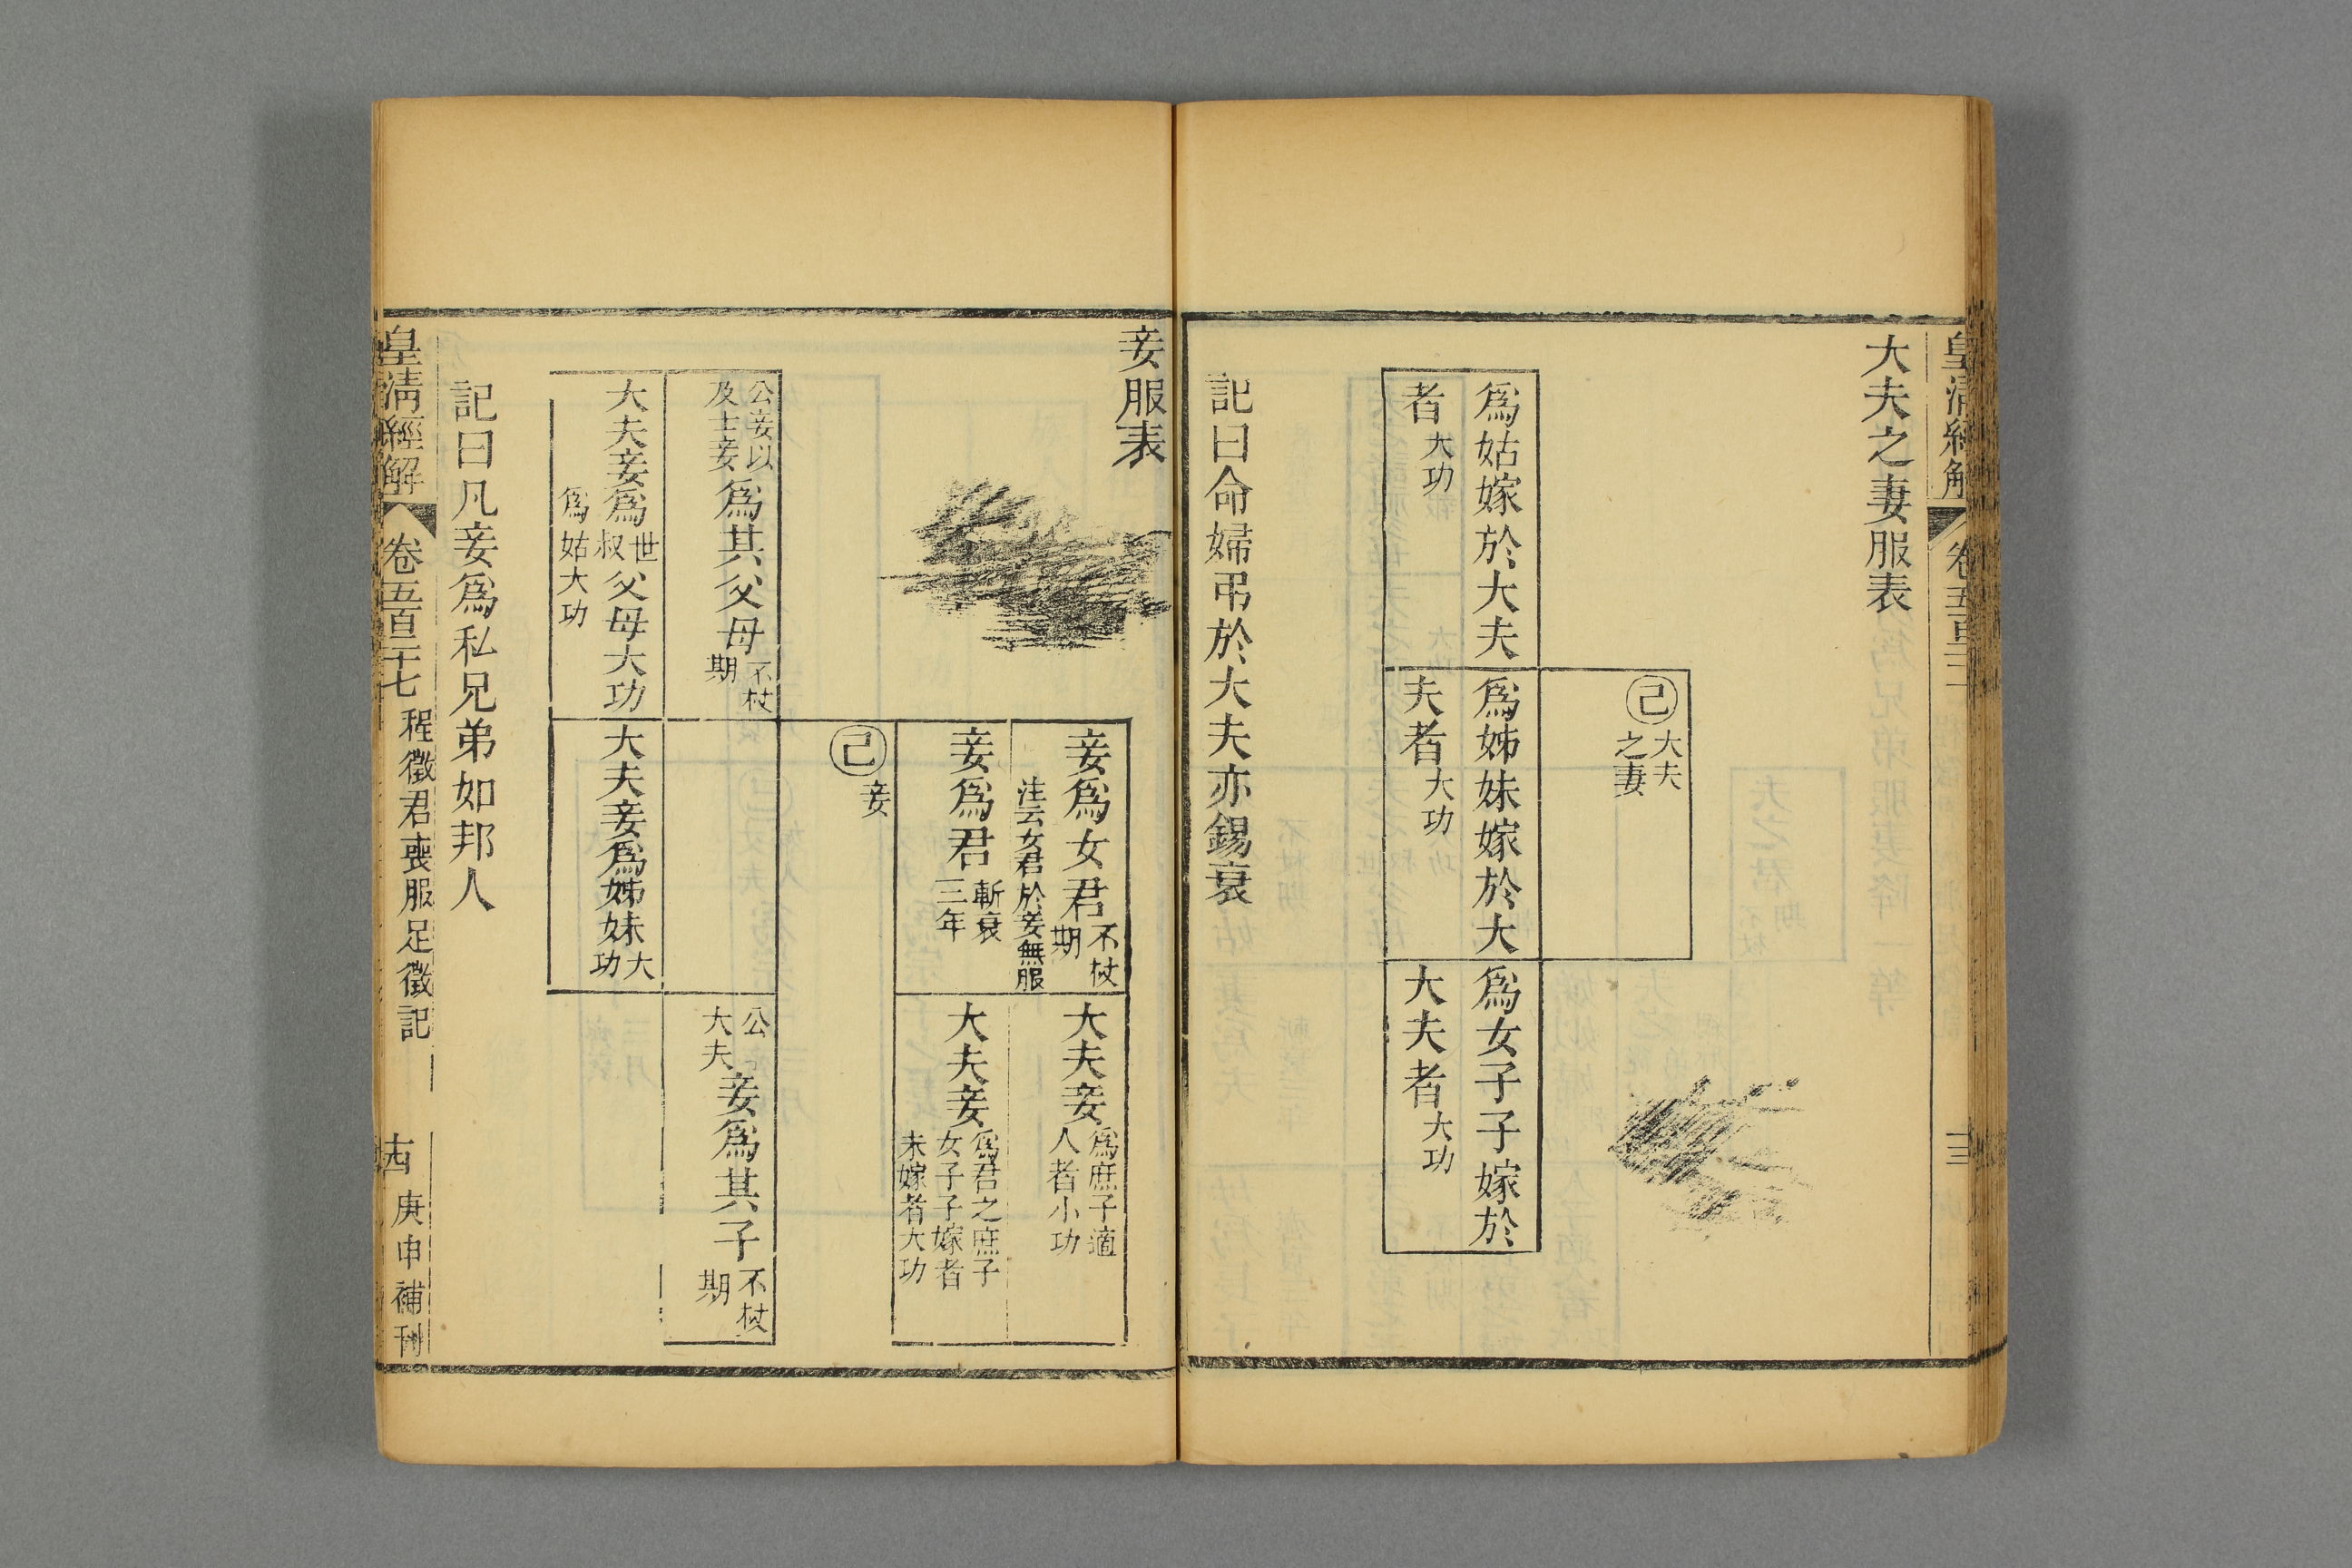 大夫之妻服表
己大夫之妻
爲姑嫁於大夫
者大功
爲姊妹嫁於大
夫者大功
爲女子子嫁於
大夫者大功
記曰命婦弔於大夫亦錫衰
妾服表
妾爲女君不杖期
注云女君於妾無服
妾爲君斬衰三年
大夫妾爲庶子適人者小功
大夫妾爲君之庶子女子子嫁者未嫁者大功
己妾
公妾以及士妾爲其父母不杖期
公大夫妾爲其子不杖期
大夫妾爲世叔父母大功
爲姑大功
大夫妾爲姊妹大功
記曰凡妾爲私兄弟如邦人
皇清經解
卷五百二十七
程徵君喪服足徵記
庚申補刊